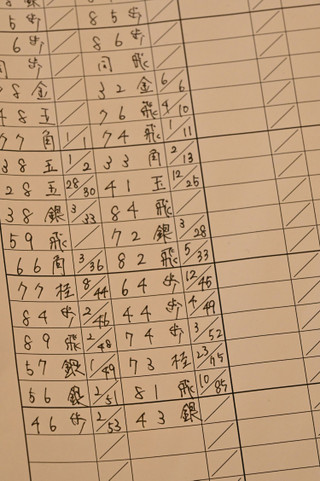 5 歩 8 5 歩
6 歩 8 6 歩
同 歩 同 飛
8 金 3 2 金 6/6
4 8 玉 7 6 飛 4/10
7 7 角 1/1 7 4 飛 1/11
3 8 玉 1/2 3 3 角 2/13
2 8 玉 28/30 4 1 玉 12/25
3 8 銀 3/33 8 4 飛
5 9 飛 7 2 銀 3/28
6 6 角 3/36 8 2 飛 5/33
7 7 桂 8/44 6 4 歩 12/45
8 4 歩 2/46 4 4 歩 4/49
8 9 飛 2/48 7 4 歩 3/52
5 7 銀 1/49 7 3 桂 23/75
5 6 銀 2/51 8 1 飛 10/85
4 6 歩 2/53 4 3 銀